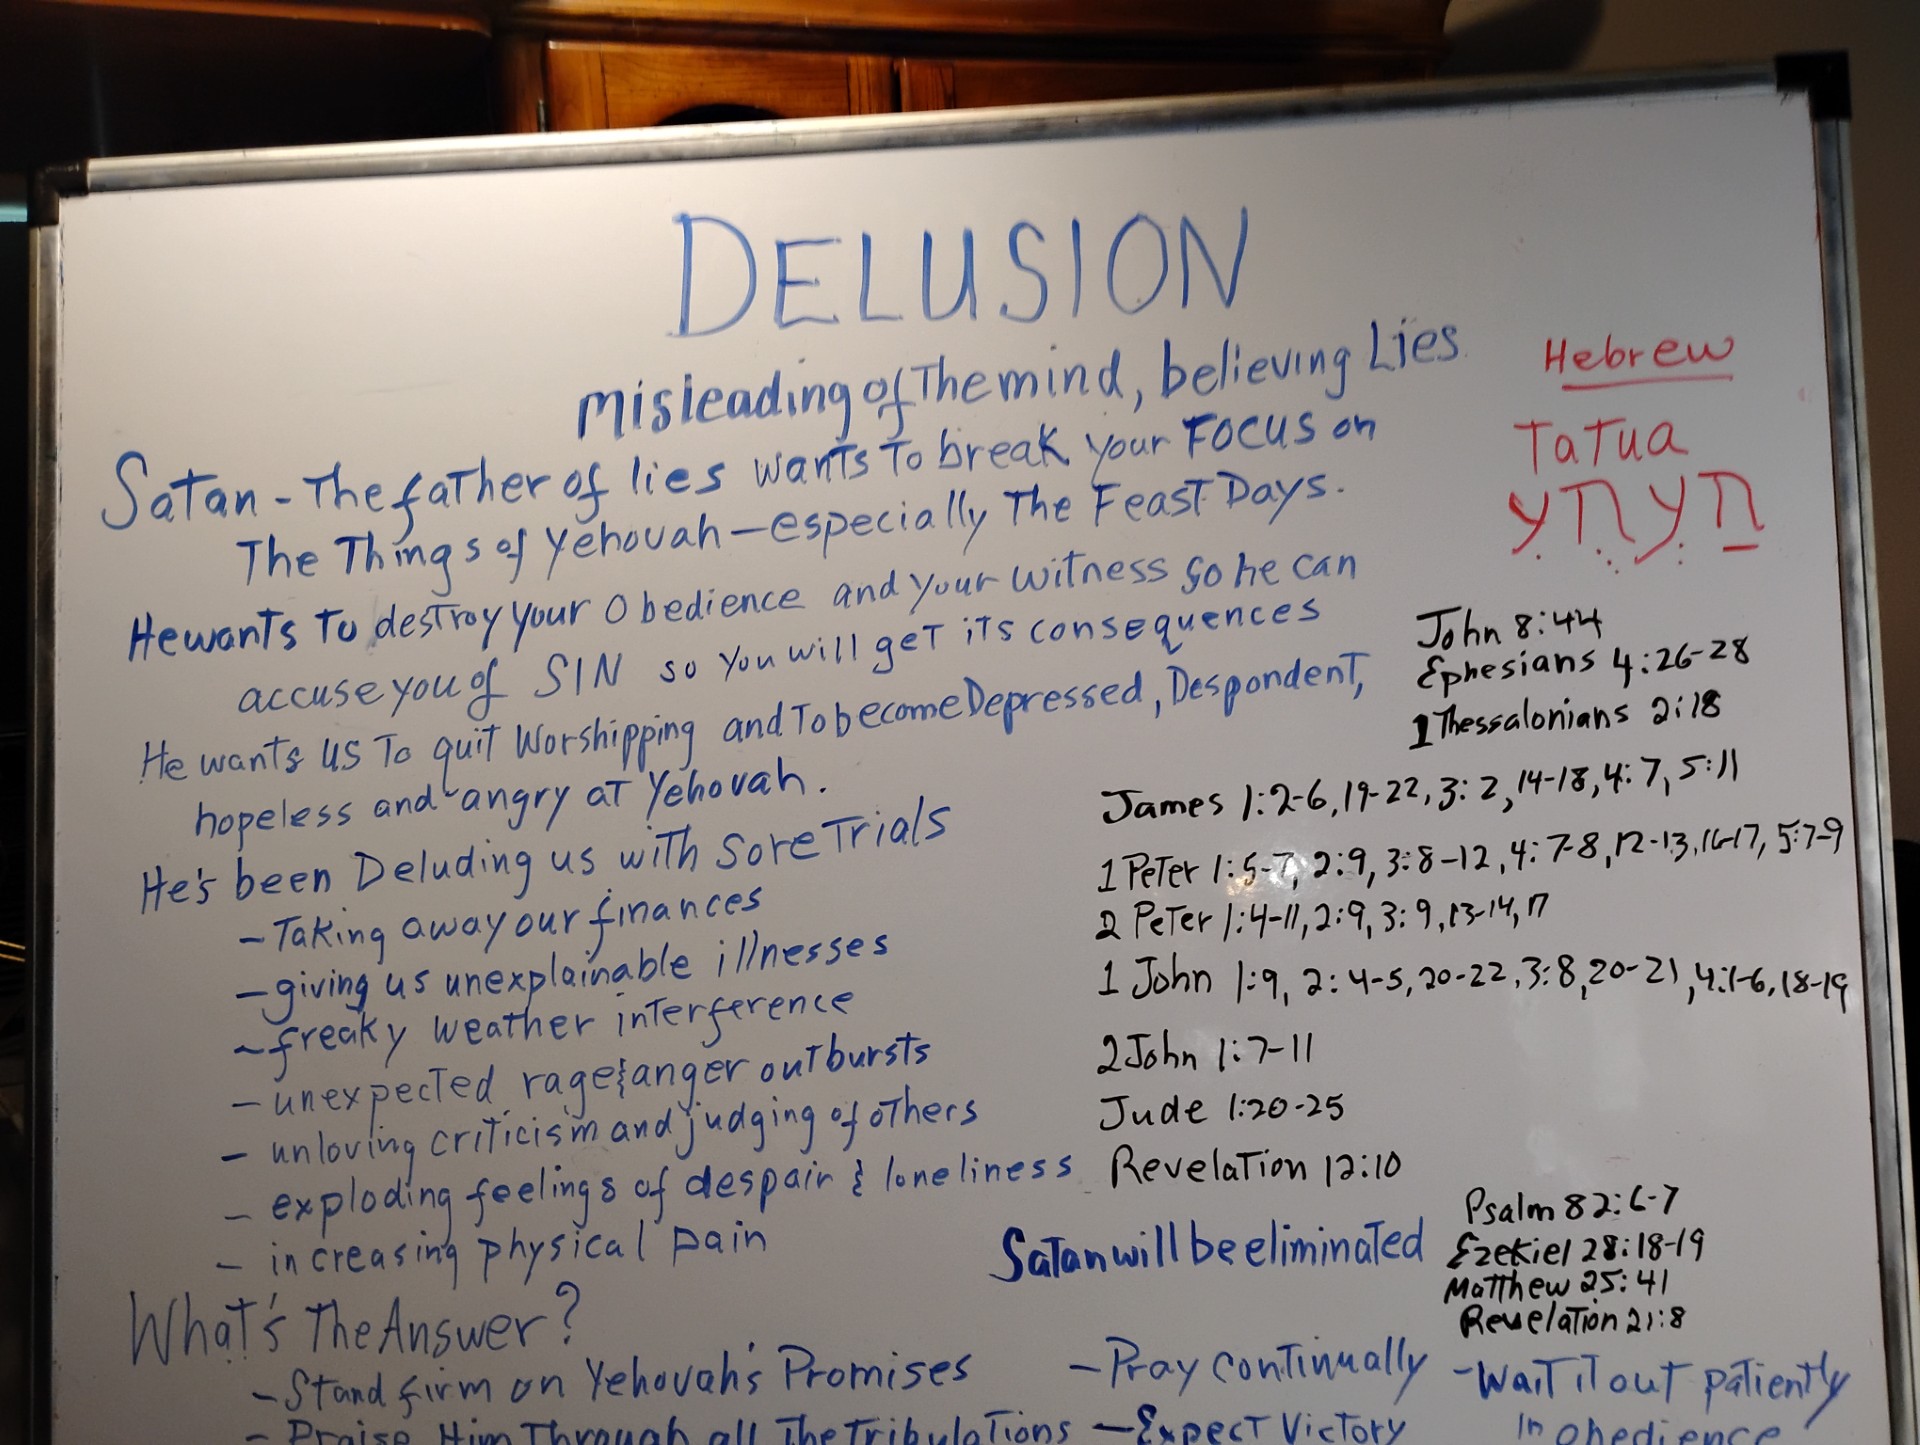 DELUSION
misleading of The mind, believing Lies
Satan - The father of lies wants To break your FOCUS on
The Things of Yehovah - especially The Feast Days.
He wants To destroy your Obedience and your witness so he can
accuse you of SIN so you will get its consequences
He wants us To quit Worshipping and To become Depressed, Despondent,
hopeless and angry at Yehovah.
He's been Deluding us with Sore Trials
- Taking away our finances
- giving us unexplainable illnesses
- freaky weather interference
- unexpected rage & anger outbursts
- unloving criticism and judging of others
- exploding feelings of despair & loneliness
- increasing physical pain
Hebrew
TaTua
John 8:44
Ephesians 4:26-28
1 Thessalonians 2:18
James 1:2-6, 19-22, 3:2, 14-18, 4:7, 5:11
1 Peter 1:5-7, 2:9, 3:8-12, 4:7-8, 12-13, 16-17, 5:7-9
2 Peter 1:4-11, 2:9, 3:9, 13-14, 17
1 John 1:9, 2:4-5, 20-22, 3:8, 20-21, 4:1-6, 18-19
2 John 1:7-11
Jude 1:20-25
Revelation 12:10
Satan will be eliminated
Psalm 82:6-7
Ezekiel 28:18-19
Matthew 25:41
Revelation 21:8
What's The Answer?
- Stand firm on Yehovah's Promises
- Praise Him Through all The Tribulations
- Pray continually
- Expect Victory
- Wait it out patiently
in obedience